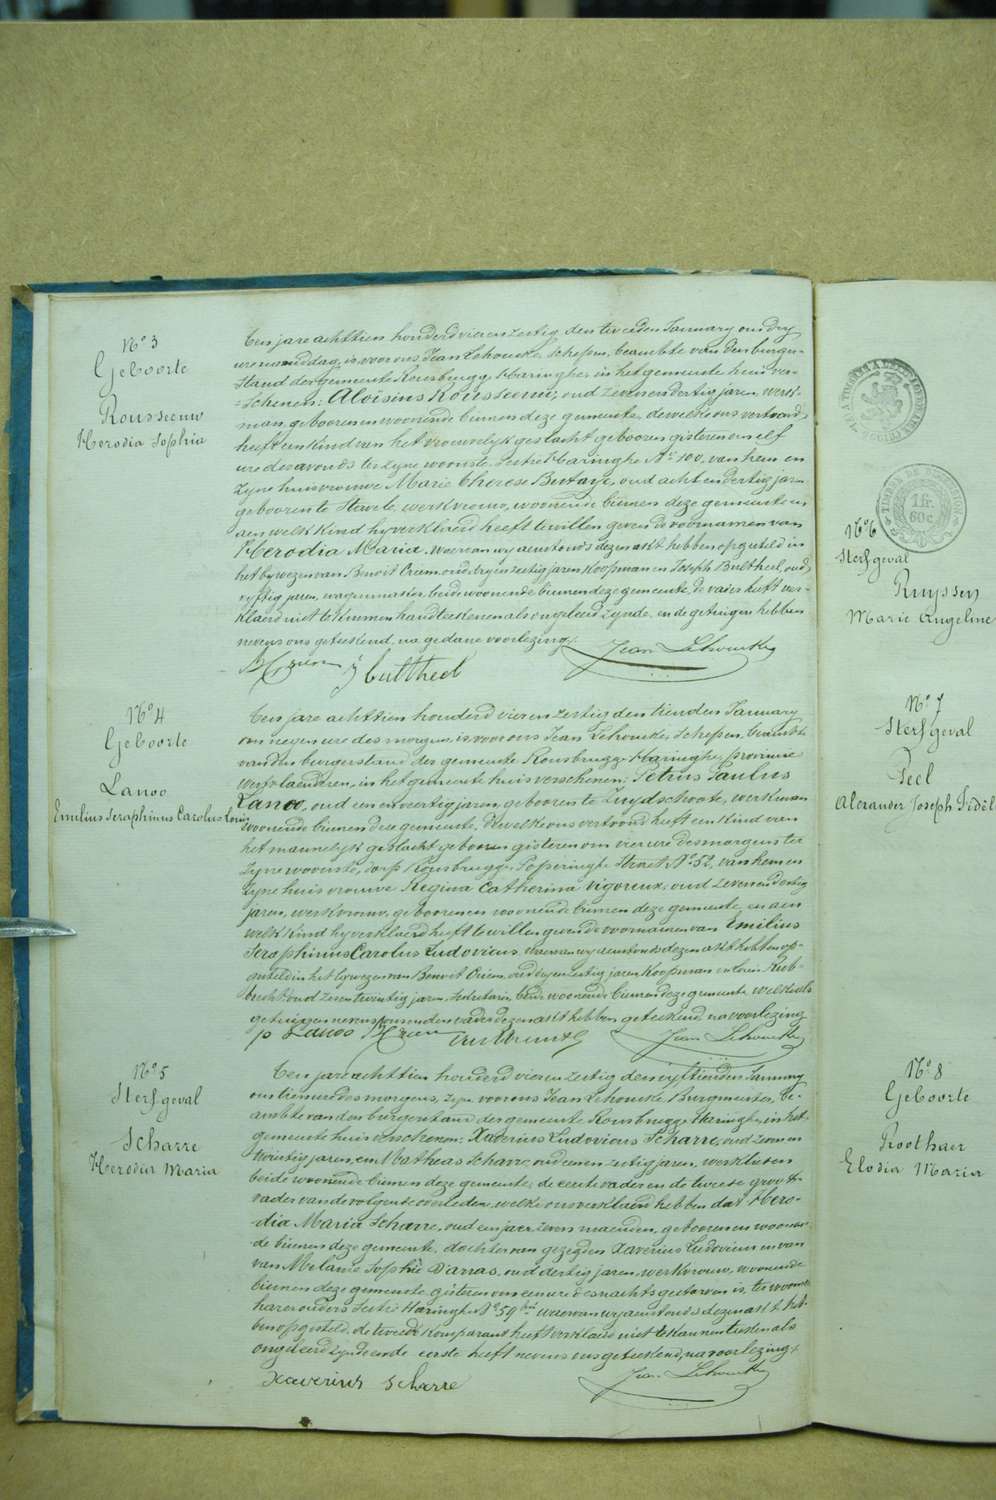 N° 3
Geboorte
Rousseeuw
Herodia Sophia
Ten jare achttien honderd vier en zestig, den tweeden January om dry
ure namiddag, is voor ons Jean Lehoucke, Schepen, beambte van den burger-
stand der gemeente Rousbrugge Haringhe, in het gemeente huis ver-
schenen: Aloisius Rousseeuw, oud zeven en dertig jaren, werk-
man, geboren en woonende binnen deze gemeente, dewelke ons vertoond
heeft een kind van het vrouwelyk geslacht geboren gisteren om elf
ure des avonds ter zyne woonste, Sectie Haringhe N° 100, van hem en
zyne huisvrouwe Marie Therese Bertaye, oud acht en dertig jaren
geboren te Stavele, werkvrouw, woonende binnen deze gemeente en
aen welk kind hy verklaerd heeft te willen geven de voornamen van
Herodia Maria, waervan wy aenstonds dezen akt hebben opgesteld in
het bywezen van Benoit Cuem, oud dry en zestig jaren koopman en Joseph Bultheel, oud
vyftig jaren, wagenmaker beide woonende binnen deze gemeente, de vader heeft ver-
klaerd niet te kunnen handteekenen als ongeleerd zynde, en de getuigen hebben
nevens ons geteekend, na gedane voorlezing.
J Bultheel Jean Lehoucke
N° 4
Geboorte
Lanoo
Emilius Seraphinus Carolus Louis
Ten jare achttien honderd vier en zestig den tienden January
om negen ure des morgens, is voor ons Jean Lehoucke, Schepen, beambte
van den burgerstand der gemeente Rousbrugge Haringhe, provincie
Westvlaenderen, in het gemeente huis verschenen: Petrus Paulus
Lanoo, oud een en veertig jaren, geboren te Zuydschoote, werkman
woonende binnen deze gemeente, dewelke ons vertoond heeft een kind van
het mannelyk geslacht geboren gisteren om vier ure des morgens ter
zyne woonste, dorp Rousbrugge, Poperinghe Straet, N° 52, van hem en
zyne huisvrouwe Regina Catherina Vigoreux, oud zeven en dertig
jaren, werkvrouw, geboren en woonende binnen deze gemeente, en aen
welk kind hy verklaerd heeft te willen geven de voornamen van Emilius
Seraphinus Carolus Ludovicus, waervan wy aenstonds dezen akt hebben op-
gesteld in het bywezen van Benoit Cuem, oud dry en zestig jaren koopman en Louis
oud zeven twintig jaren, Secretaris, beide woonende binnen deze gemeente, welke als
getuigen nevens ons en den vader dezen akt hebben geteekend, na voorlezing
p Lanoo Jean Lehoucke
N° 5
Sterfgeval
Scharre
Herodia Maria
Ten jare achttien honderd vier en zestig den vyftienden January
om tien ure des morgens, zyn voor ons Jean Lehoucke, Burgmeester, be-
ambte van den burgerstand der gemeente Rousbrugge Haringhe, in het
gemeente huis verschenen: Xaverius Ludovicus Scharre, oud zeven en
twintig jaren, en Matheas Scharre, oud een en zestig jaren, werklieden
beide woonende binnen deze gemeente, de eerste vader en de tweede groot-
vader van de volgende overledene, welke ons verklaerd hebben dat Hero-
dia Maria Scharre, oud een jaer zeven maenden, geboren en woonen-
de binnen deze gemeente, dochter van gezegden Xaverius Ludovicus en van
van Melanie Sophie Darras, oud dertig jaren, werkvrouw, woonende
binnen deze gemeente, gisteren om een ure des nachts gestorven is, ter woonste
harer ouders Sectie Haringhe N° 59 bis waervan wy aenstonds dezen akt heb-
ben opgesteld, de tweede komparant heeft verklaerd niet te kunnen teekenen als
ongeleerd zynde en de eerste heeft nevens ons geteekend, na voorlezing.
Xaverius Scharre Jean Lehoucke
TIMBRE DE DIMENSION
1 fr.
60 c.
N° 6
Sterfgeval
Ruyssen
Marie Angeline
N° 7
Sterfgeval
Peel
Alexander Joseph Fidèl
N° 8
Geboorte
Roothaer
Elodia Maria